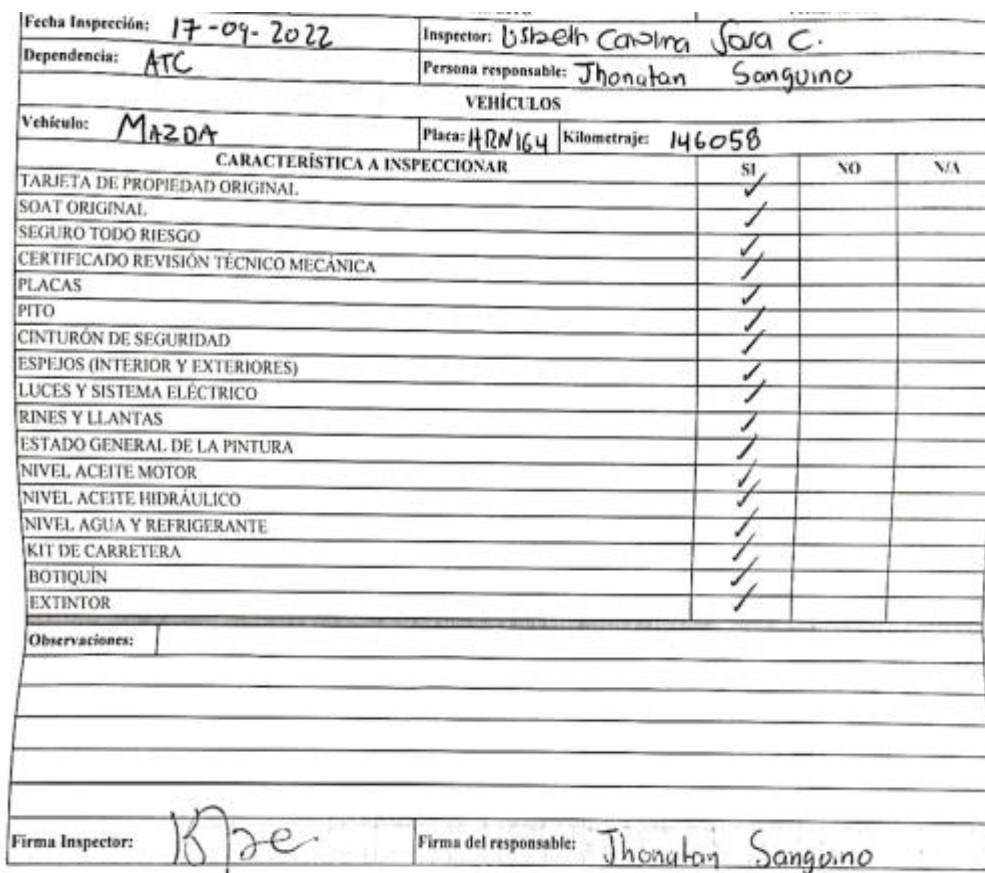 Fecha Inspección: 17-09-2022 Inspector: Lisbeth Carolina C.
Dependencia: ATC Persona responsable: Jhonatan Sanguino
VEHÍCULOS
Vehículo: MAZDA Placa: HRN164 Kilometraje: 146058
CARACTERÍSTICA A INSPECCIONAR SI NO N/A
TARJETA DE PROPIEDAD ORIGINAL ✓
SOAT ORIGINAL ✓
SEGURO TODO RIESGO ✓
CERTIFICADO REVISIÓN TÉCNICO MECÁNICA ✓
PLACAS ✓
PITO ✓
CINTURÓN DE SEGURIDAD ✓
ESPEJOS (INTERIOR Y EXTERIORES) ✓
LUCES Y SISTEMA ELÉCTRICO ✓
RINES Y LLANTAS ✓
ESTADO GENERAL DE LA PINTURA ✓
NIVEL ACEITE MOTOR ✓
NIVEL ACEITE HIDRÁULICO ✓
NIVEL AGUA Y REFRIGERANTE ✓
KIT DE CARRETERA ✓
BOTIQUÍN ✓
EXTINTOR ✓
Observaciones:
Firma Inspector: Firma del responsable: Jhonatan Sanguino